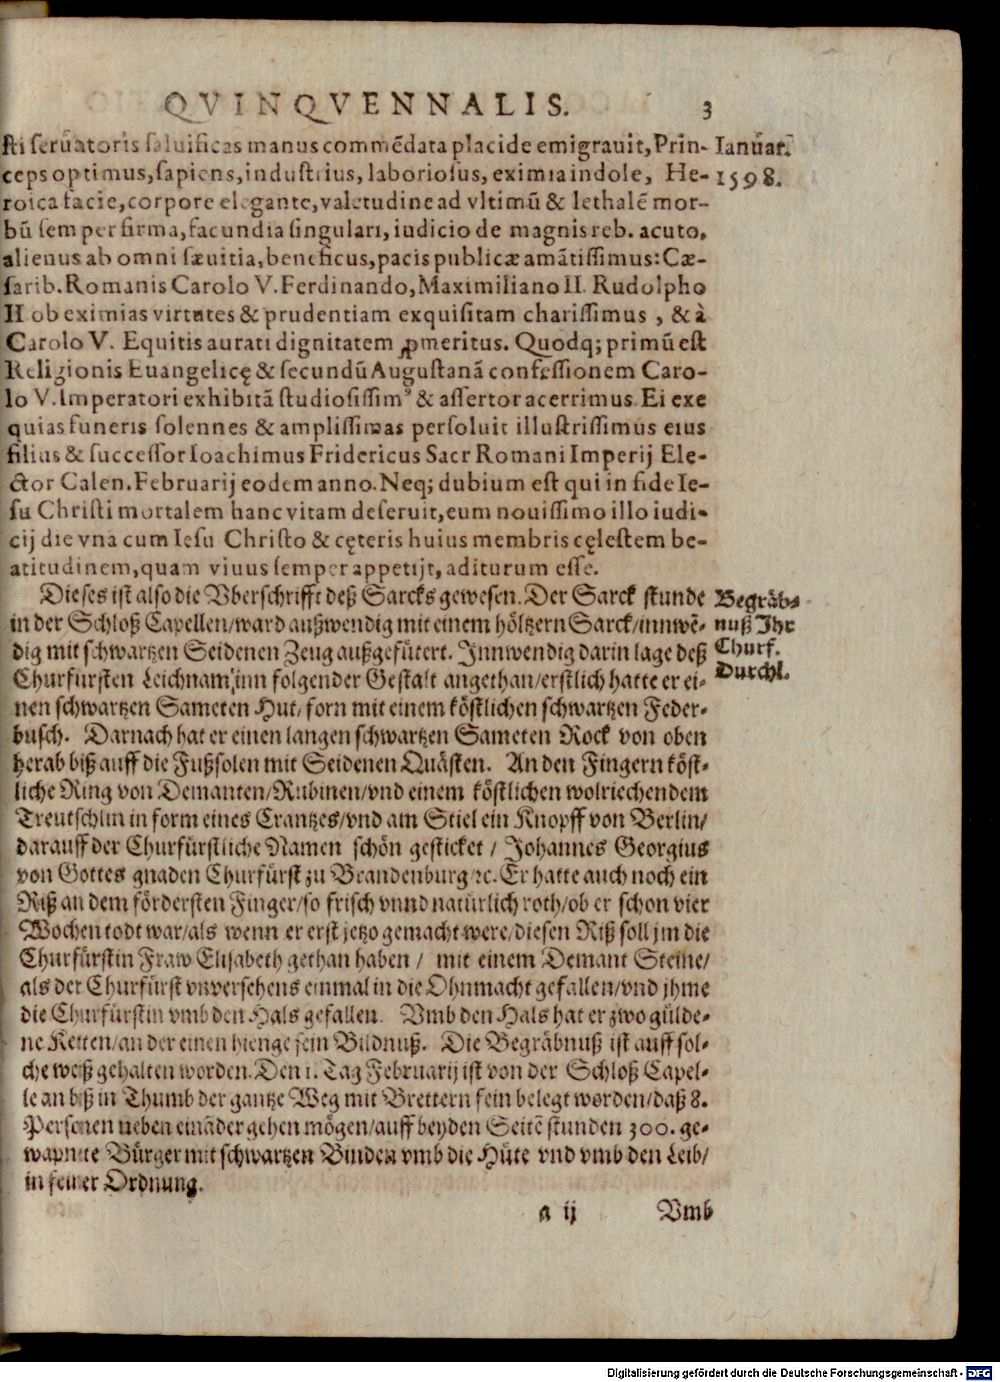 QVINQVENNALIS. 3
sti seruatoris saluificas manus commēdata placide emigrauit, Prin- Ianuar.
ceps optimus, sapiens, industrius, laboriosus, eximia indole, He- 1598.
roica facie, corpore elegante, valetudine ad vltimū & lethalē mor-
bū semper firma, facundia singulari, iudicio de magnis reb. acuto,
alienus ab omni sæuitia, beneficus, pacis publicæ amātissimus: Cæ-
sarib. Romanis Carolo V. Ferdinando, Maximiliano II. Rudolpho
II ob eximias virtutes & prudentiam exquisitam charissimus, & à
Carolo V. Equitis aurati dignitatem ꝓmeritus. Quodq; primū est
Religionis Euangelicę & secundū Augustanā confessionem Caro-
lo V. Imperatori exhibitā studiosissimꝰ & assertor acerrimus. Ei exe
quias funeris solennes & amplissimas persoluit illustrissimus eius
filius & successor Ioachimus Fridericus Sacr Romani Imperij Ele-
ctor Calen. Februarij eodem anno. Neq; dubium est qui in fide Ie-
su Christi mortalem hanc vitam deseruit, eum nouissimo illo iudi-
cij die vna cum Iesu Christo & cęteris huius membris cęlestem be-
atitudinem, quam viuus semper appetijt, aditurum esse.
Dieses ist also die Vberschrifft deß Sarcks gewesen. Der Sarck stunde Begräb-
in der Schloß Capellen/ ward außwendig mit einem höltzern Sarck/ innwē- nuß Ihr
dig mit schwartzen Seidenen Zeug außgefütert. Innwendig darin lage deß Churf.
Churfürsten Leichnam/ inn folgender Gestalt angethan/ erstlich hatte er ei- Durchl.
nen schwartzen Sameten Hut/ forn mit einem köstlichen schwartzen Feder-
busch. Darnach hat er einen langen schwartzen Sameten Rock von oben
herab biß auff die Fußsolen mit Seidenen Quästen. An den Fingern köst-
liche Ring von Demanten/ Rubinen/ vnd einem köstlichen wolriechendem
Treutschlin in form eines Crantzes/ vnd am Stiel ein Knopff von Berlin/
darauff der Churfürstliche Namen schön gesticket / Johannes Georgius
von Gottes gnaden Churfürst zu Brandenburg ꝛc. Er hatte auch noch ein
Riß an dem fördersten Finger/ so frisch vnnd natürlich roth/ ob er schon vier
Wochen todt war/ als wenn er erst jetzo gemacht were/ diesen Riß soll jm die
Churfürstin Fraw Elisabeth gethan haben / mit einem Demant Steine/
als der Churfürst vnversehens einmal in die Ohnmacht gefallen/ vnd jhme
die Churfürstin vmb den Hals gefallen. Vmb den Hals hat er zwo gülde-
ne Ketten/ an der einen hienge sein Bildnuß. Die Begräbnuß ist auff sol-
che weß gehalten worden. Den 1. Tag Februarij ist von der Schloß Capel-
le an biß in Thumb der gantze Weg mit Brettern fein belegt worden/ daß 8.
Personen neben eināder gehen mögen/ auff beyden Seitē stunden 300. ge-
wapnete Bürger mit schwartzen Binden vmb die Hüte vnd vmb den Leib/
in feiner Ordnung.
a ij Vmb
Digitalisierung gefördert durch die Deutsche Forschungsgemeinschaft - DFG